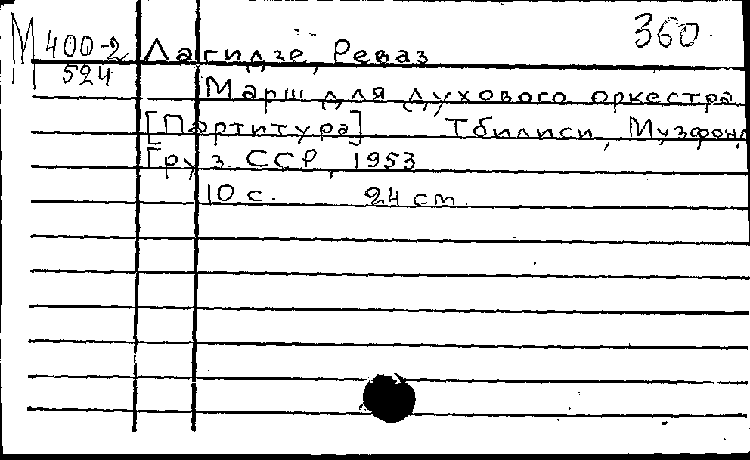 360
М 400-2 Лагидзе, Реваз
524
Марш для духового оркестра
[Партитура] Тбилиси, Музфонд
Груз ССР, 1953
10 с. 24 cm